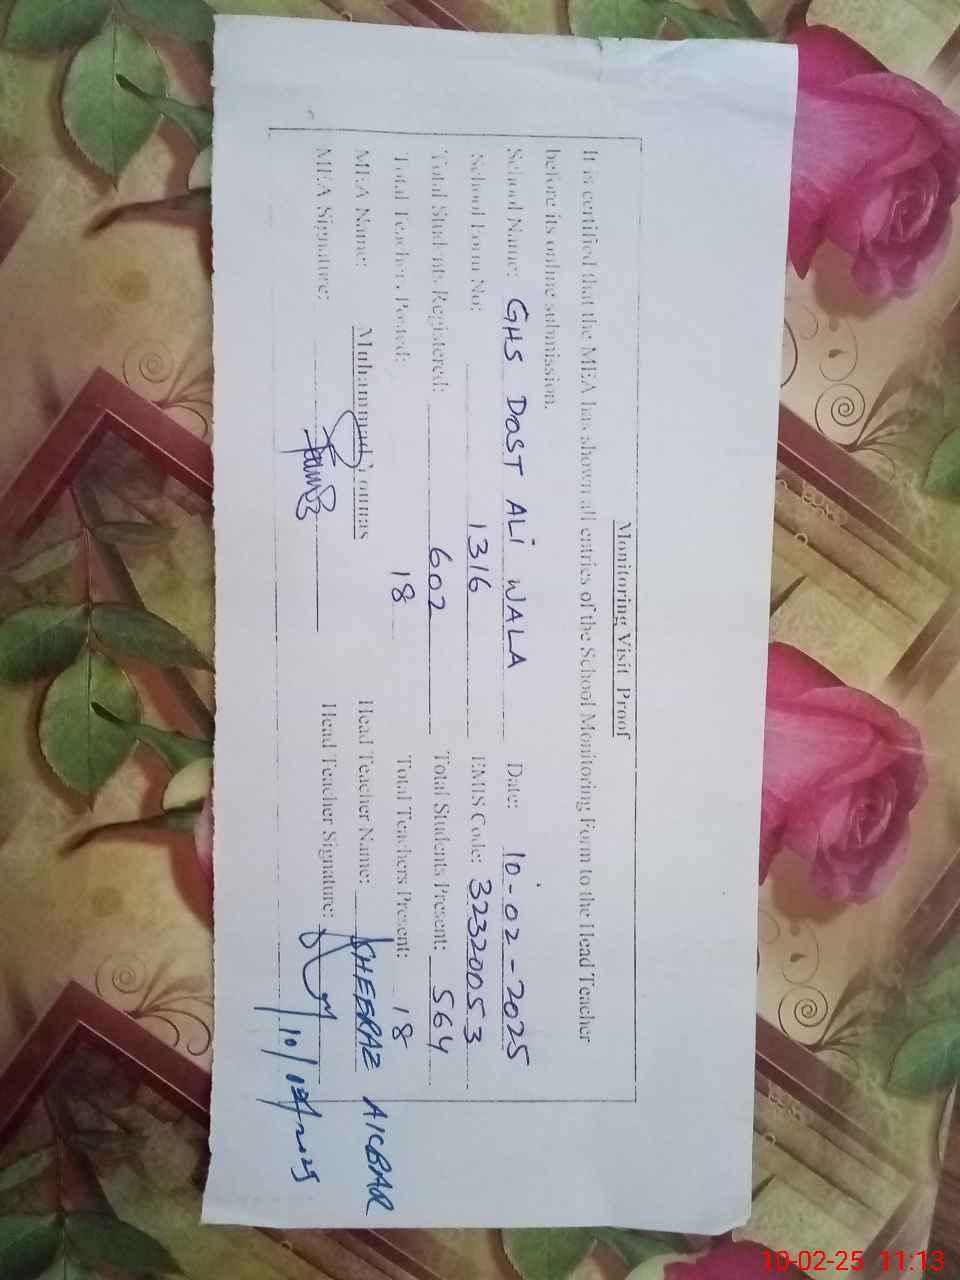 Monitoring Visit Proof
It is certified that the MEA has shown all entries of the School Monitoring Form to the Head Teacher
before its online submission.
School Name: GHS DOST ALI WALA Date: 10-02-2025
School Form No: 1316 EMIS Code: 32320053
Total Students Registered: 602 Total Students Present: 564
Total Teachers Posted: 18 Total Teachers Present: 18
MEA Name: Muhammad Younas Head Teacher Name: SHEERAZ AKBAR
MEA Signature: Head Teacher Signature:
10-02-25 11:13